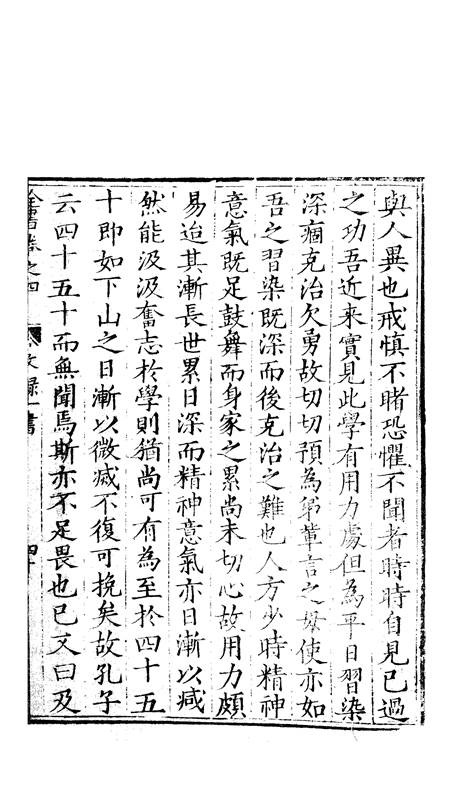 與人異也戒慎不睹恐懼不聞者時時自見己過
之功吾近來實見此學有用力處但為平日習染
深痼克治欠勇故切切預為弟輩言之毋使亦如
吾之習染既深而後克治之難也人方少時精神
意氣既足鼓舞而身家之累尚未切心故用力頗
易迨其漸長世累日深而精神意氣亦日漸以減
然能汲汲奮志於學則猶尚可有為至於四十五
十即如下山之日漸以微滅不復可挽矣故孔子
云四十五十而無聞焉斯亦不足畏也已又曰及
全書卷之四 文錄一書 四十